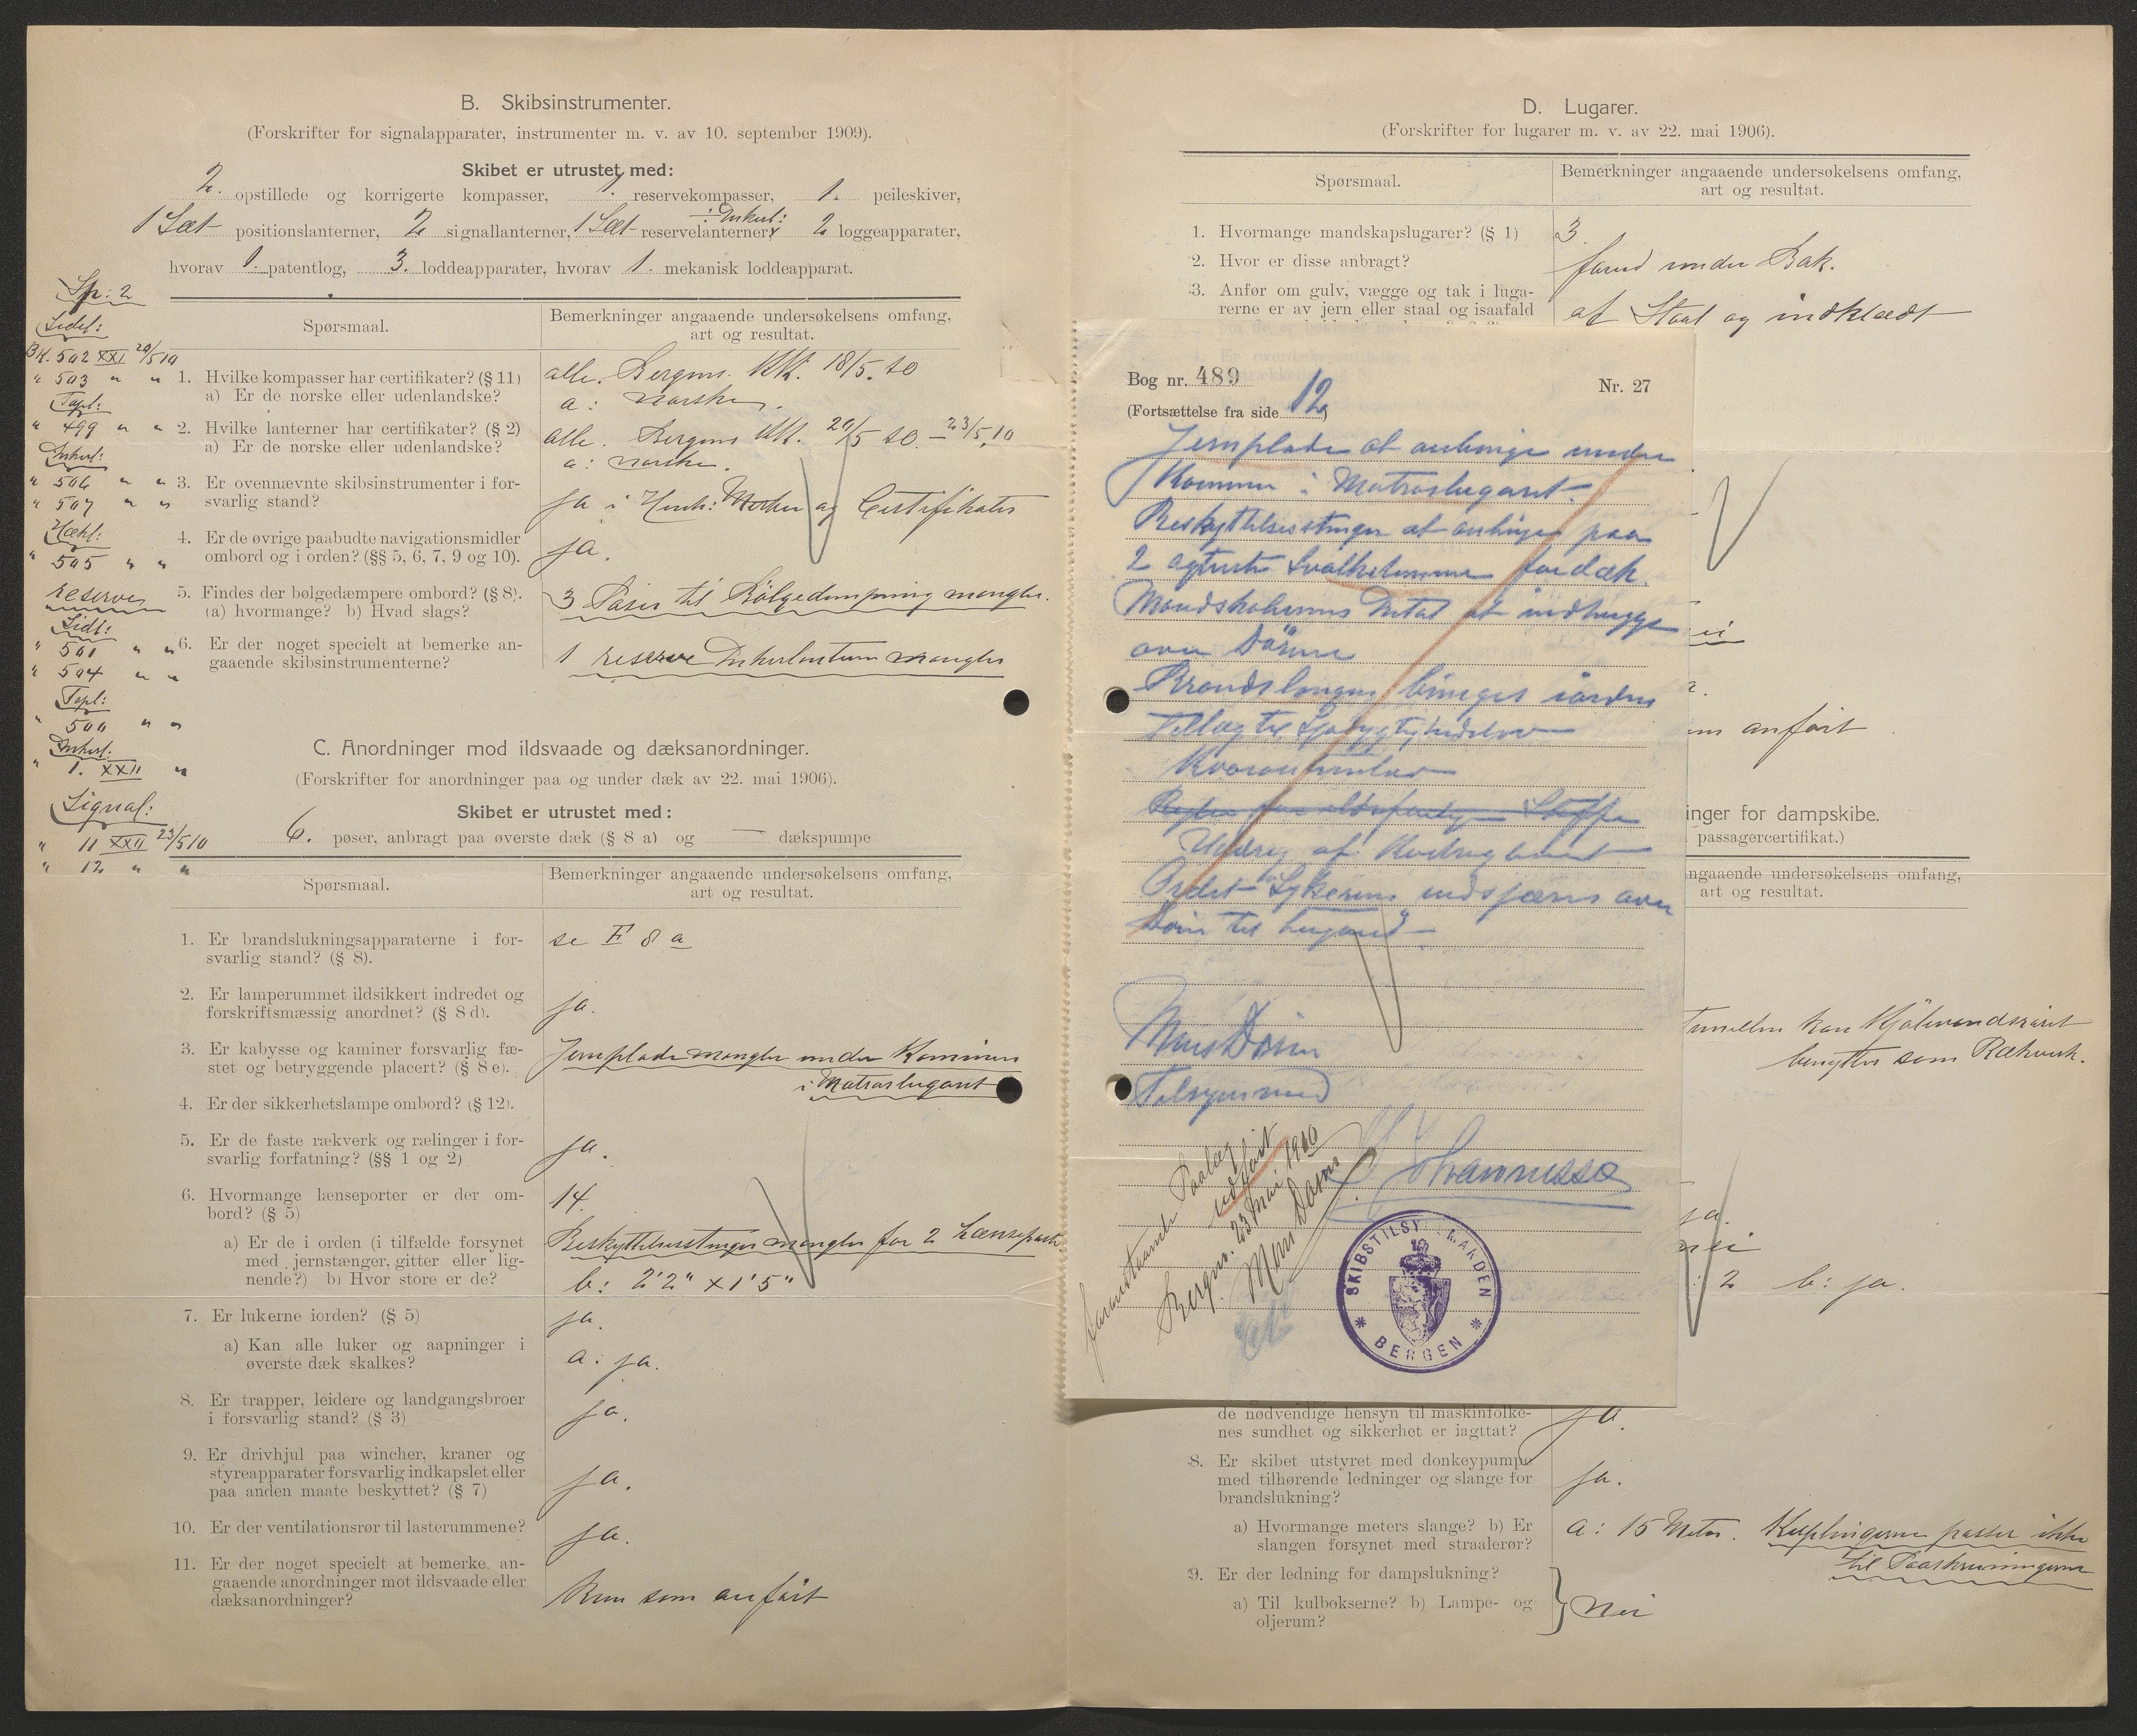 B. Skibsinstrumenter.
(Forskrifter for signalapparater, instrumenter m. v. av 10. september 1909).
Skibet er utrustet med:
2. opstillede og korrigerte kompasser, 1. reservekompasser, 1. peileskiver,
1 Sæt positionslanterner, 2 signallanterner, 1 Sæt reservelanterner 2 loggeapparater,
hvorav 1. patentlog, 3. loddeapparater, hvorav 1. mekanisk loddeapparat.
Sp: 2
Sidel:
BK. 502 XXI 20/5 10
" 503 " "
Topl:
" 499 " "
Ankerl:
" 506 " "
" 507 " "
Hækl:
" 505 " "
reserve
Sidl:
" 501 " "
" 504 " "
Topl:
" 500 " "
Ankerl:
" 1. XXII "
Signal:
" 11 XXII 23/5 10
" 12 " "
Spørsmaal.
Bemerkninger angaaende undersøkelsens omfang,
art og resultat.
1. Hvilke kompasser har certifikater? (§ 11)
a) Er de norske eller udenlandske?
alle. Bergens KK. 18/5. 10
a: norske.
2. Hvilke lanterner har certifikater? (§ 2)
a) Er de norske eller udenlandske?
alle. Bergens KK. 20/5 10 – 23/5. 10
a: norske.
3. Er ovennævnte skibsinstrumenter i for-
svarlig stand?
ja i Henh: Merker og Certifikater
4. Er de øvrige paabudte navigationsmidler
ombord og i orden? (§§ 5, 6, 7, 9 og 10).
ja.
5. Findes der bølgedæmpere ombord? (§ 8).
(a) hvormange? b) Hvad slags?
3 Poser til Bölgedempning mangler.
6. Er der noget specielt at bemerke an-
gaaende skibsinstrumenterne?
1 reserve Ankerlanterne mangler
C. Anordninger mod ildsvaade og dæksanordninger.
(Forskrifter for anordninger paa og under dæk av 22. mai 1906).
Skibet er utrustet med:
6. pøser, anbragt paa øverste dæk (§ 8 a) og — dækspumpe
Spørsmaal.
Bemerkninger angaaende undersøkelsens omfang,
art og resultat.
1. Er brandslukningsapparaterne i for-
svarlig stand? (§ 8).
se F 8 a
2. Er lamperummet ildsikkert indredet og
forskriftsmæssig anordnet? (§ 8 d).
ja.
3. Er kabysse og kaminer forsvarlig fæ-
stet og betryggende placert? (§ 8 e).
Jernplade mangler under Kaminen
i Matroslugaret
4. Er der sikkerhetslampe ombord? (§ 12).
5. Er de faste rækverk og rælinger i for-
svarlig forfatning? (§§ 1 og 2)
ja.
6. Hvormange lænseporter er der om-
bord? (§ 5)
14.
a) Er de i orden (i tilfælde forsynet
med jernstænger, gitter eller lig-
nende?) b) Hvor store er de?
Beskyttelsesstænger mangler for 2 Lænseporte.
b: 2'2" x 1'5"
7. Er lukerne iorden? (§ 5)
ja.
a) Kan alle luker og aapninger i
øverste dæk skalkes?
a: ja.
8. Er trapper, leidere og landgangsbroer
i forsvarlig stand? (§ 3)
ja.
9. Er drivhjul paa wincher, kraner og
styreapparater forsvarlig indkapslet eller
paa anden maate beskyttet? (§ 7)
ja.
10. Er der ventilationsrør til lasterummene?
ja.
11. Er der noget specielt at bemerke an-
gaaende anordninger mot ildsvaade eller
dæksanordninger?
Kun som anfört
D. Lugarer.
(Forskrifter for lugarer m. v. av 22. mai 1906).
Spørsmaal.
Bemerkninger angaaende undersøkelsens omfang,
art og resultat.
1. Hvormange mandskapslugarer? (§ 1)
3.
2. Hvor er disse anbragt?
forud under Bak.
3. Anfør om gulv, vægge og tak i luga-
rerne er av jern eller staal og isaafald
af Staal og indklædt
Bog nr. 489
Nr. 27
(Fortsættelse fra side 12)
Jernplade at anbringe under
Kaminen i Matroslugaret.
Beskyttelsesstænger at anbringes paa
2 agterste fordæk.
Mandskabernes Antal at indhugge
over Dörene
Brandslangen bringes iorden
Tillæg til Sjødygtighedslov
Uddrag af
Ordet Lykerens over
Døren til Lugaret
Mons Dosen
Tilsynsmand
Johannessen
foranstaaende Paalæg
udfört
Bergen. 23 Mai 1910
Mons Dosen
SKIBSTILSYNSMANDEN
BERGEN
om anfört
inger for dampskibe.
passagercertifikat.)
ngaaende undersøkelsens omfang,
art og resultat.
Tunellen kan Kjölevandsröret
benyttes som Rækverk.
ja.
nei
2 b: ja.
de nødvendige hensyn til maskinfolke-
nes sundhet og sikkerhet er iagttat?
ja.
8. Er skibet utstyret med donkeypump
med tilhørende ledninger og slange for
brandslukning?
ja.
a) Hvormange meters slange? b) Er
slangen forsynet med straalerør?
a: 15 Meter. Kuplingerne passer ikke
til Paaskruningerne
9. Er der ledning for dampslukning?
a) Til kulbøkserne? b) Lampe- og
oljerum?
Nei